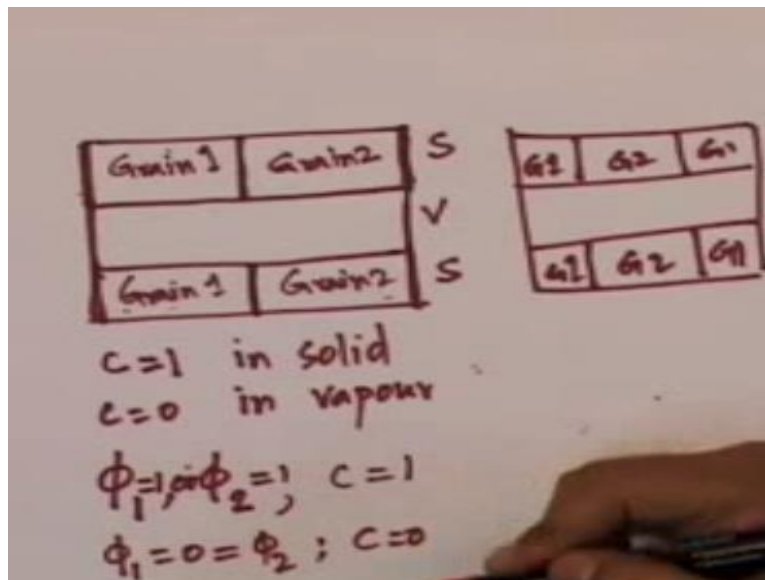 Grain 1 Grain 2 S G1 G2 G1
V
Grain 1 Grain 2 S G1 G2 G1
c=1 in solid
c=0 in vapour
ϕ₁=1, or ϕ₂=1; c=1
ϕ₁=0=ϕ₂; c=0